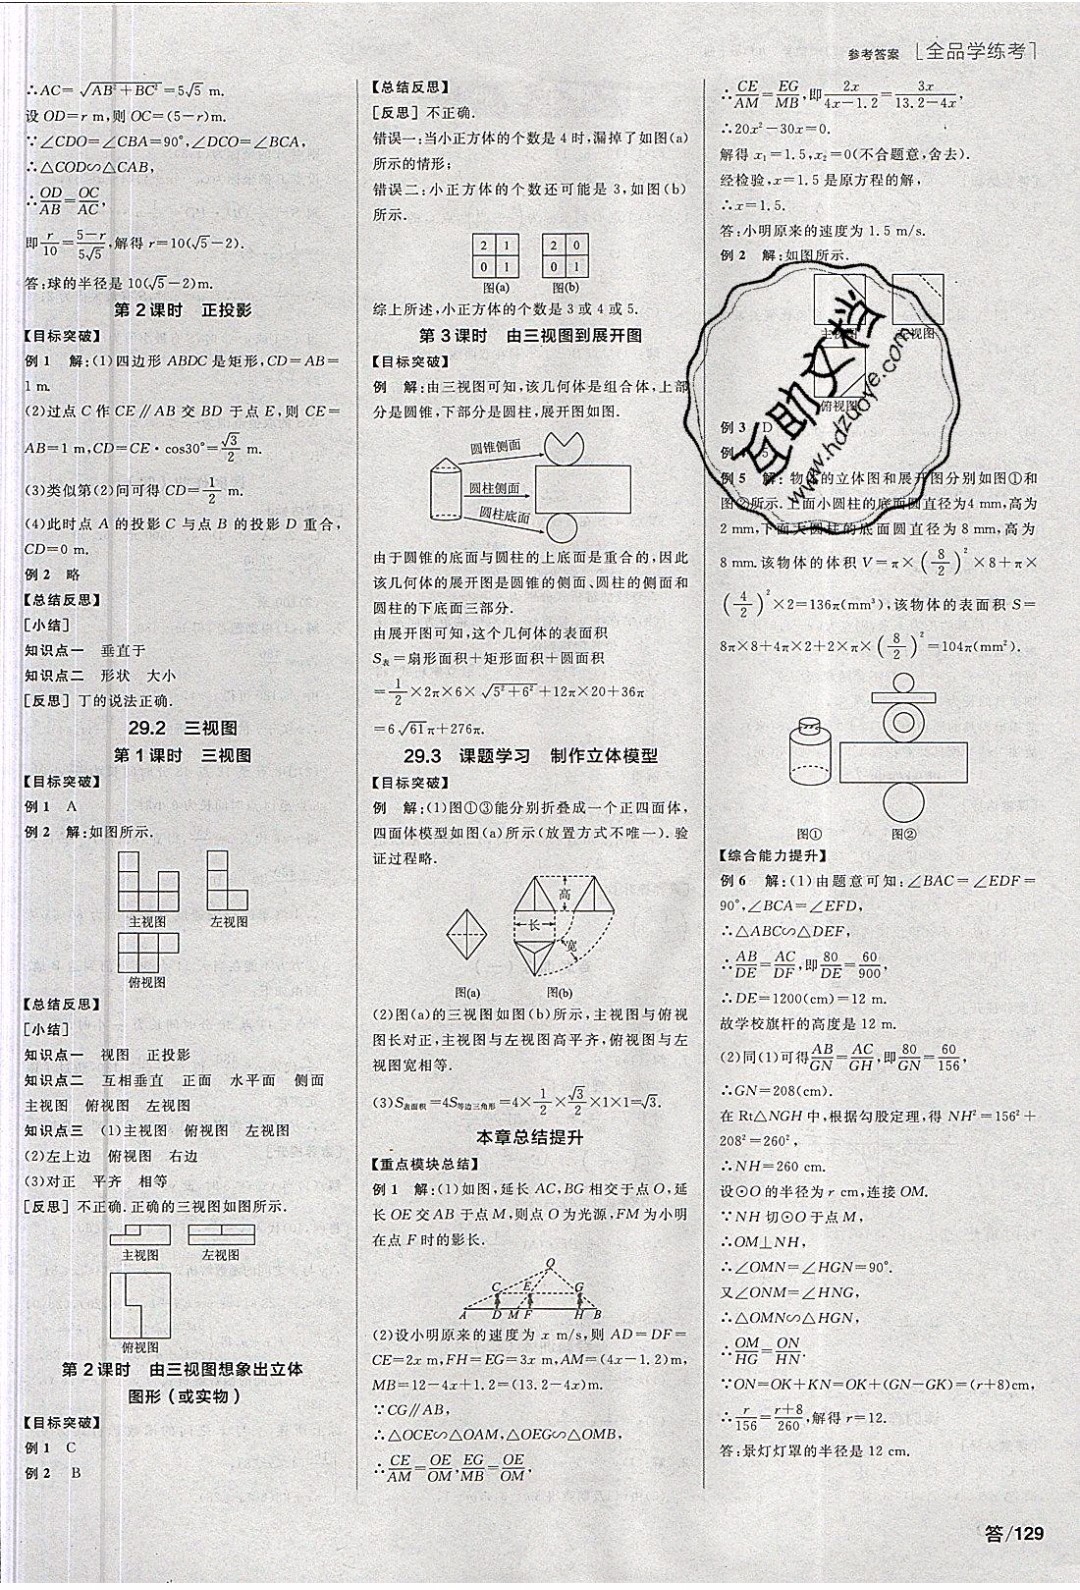 参考答案 [全品学练考]
∴AC=√(AB²+BC²)=5√5 m.
设OD=r m,则OC=(5-r)m.
∵∠CDO=∠CBA=90°,∠DCO=∠BCA,
∴△COD∽△CAB,
∴OD/AB=OC/AC,
即r/10=(5-r)/5√5,解得r=10(√5-2).
答:球的半径是10(√5-2)m.
第2课时 正投影
【目标突破】
例1 解:(1)四边形ABDC是矩形,CD=AB=
1 m.
(2)过点C作CE∥AB交BD于点E,则CE=
AB=1 m,CD=CE·cos30°=√3/2 m.
(3)类似第(2)问可得CD=1/2 m.
(4)此时点A的投影C与点B的投影D重合,
CD=0 m.
例2 略
【总结反思】
[小结]
知识点一 垂直于
知识点二 形状 大小
[反思]丁的说法正确.
29.2 三视图
第1课时 三视图
【目标突破】
例1 A
例2 解:如图所示.
主视图 左视图
俯视图
【总结反思】
[小结]
知识点一 视图 正投影
知识点二 互相垂直 正面 水平面 侧面
主视图 俯视图 左视图
知识点三 (1)主视图 俯视图 左视图
(2)左上边 俯视图 右边
(3)对正 平齐 相等
[反思]不正确.正确的三视图如图所示.
主视图 左视图
俯视图
第2课时 由三视图想象出立体
图形(或实物)
【目标突破】
例1 C
例2 B
【总结反思】
[反思]不正确.
错误一:当小正方体的个数是4时,漏掉了如图(a)
所示的情形;
错误二:小正方体的个数还可能是3,如图(b)
所示.
2 1 2 0
0 1 0 1
图(a) 图(b)
综上所述,小正方体的个数是3或4或5.
第3课时 由三视图到展开图
【目标突破】
例 解:由三视图可知,该几何体是组合体,上部
分是圆锥,下部分是圆柱,展开图如图.
圆锥侧面
圆柱侧面
圆柱底面
由于圆锥的底面与圆柱的上底面是重合的,因此
该几何体的展开图是圆锥的侧面、圆柱的侧面和
圆柱的下底面三部分.
由展开图可知,这个几何体的表面积
S表=扇形面积+矩形面积+圆面积
=1/2×2π×6×√(5²+6²)+12π×20+36π
=6√61π+276π.
29.3 课题学习 制作立体模型
【目标突破】
例 解:(1)图①③能分别折叠成一个正四面体,
四面体模型如图(a)所示(放置方式不唯一).验
证过程略.
高
长
宽
图(a) 图(b)
(2)图(a)的三视图如图(b)所示,主视图与俯视
图长对正,主视图与左视图高平齐,俯视图与左
视图宽相等.
(3)S表面积=4S等边三角形=4×1/2×√3/2×1×1=√3.
本章总结提升
【重点模块总结】
例1 解:(1)如图,延长AC,BG相交于点O,延
长OE交AB于点M,则点O为光源,FM为小明
在点F时的影长.
O
C E G
A D M F H B
(2)设小明原来的速度为x m/s,则AD=DF=
CE=2x m,FH=EG=3x m,AM=(4x-1.2)m,
MB=12-4x+1.2=(13.2-4x)m.
∵CG∥AB,
∴△OCE∽△OAM,△OEG∽△OMB,
∴CE/AM=OE/OM,EG/MB=OE/OM,
∴CE/AM=EG/MB,即2x/(4x-1.2)=3x/(13.2-4x),
∴20x²-30x=0.
解得x₁=1.5,x₂=0(不合题意,舍去).
经检验,x=1.5是原方程的解,
∴x=1.5.
答:小明原来的速度为1.5 m/s.
例2 解:如图所示.
主视图 左视图
俯视图
例3 D
例4 5
例5 解:物体的立体图和展开图分别如图①和
图②所示.上面小圆柱的底面圆直径为4 mm,高为
2 mm,下面大圆柱的底面圆直径为8 mm,高为
8 mm.该物体的体积V=π×(8/2)²×8+π×
(4/2)²×2=136π(mm³),该物体的表面积S=
8π×8+4π×2+2×π×(8/2)²=104π(mm²).
图① 图②
【综合能力提升】
例6 解:(1)由题意可知:∠BAC=∠EDF=
90°,∠BCA=∠EFD,
∴△ABC∽△DEF,
∴AB/DE=AC/DF,即80/DE=60/900,
∴DE=1200(cm)=12 m.
故学校旗杆的高度是12 m.
(2)同(1)可得AB/GN=AC/GH,即80/GN=60/156,
∴GN=208(cm).
在Rt△NGH中,根据勾股定理,得NH²=156²+
208²=260²,
∴NH=260 cm.
设⊙O的半径为r cm,连接OM.
∵NH切⊙O于点M,
∴OM⊥NH,
∴∠OMN=∠HGN=90°.
又∠ONM=∠HNG,
∴△OMN∽△HGN,
∴OM/HG=ON/HN.
∵ON=OK+KN=OK+(GN-GK)=(r+8)cm,
∴r/156=(r+8)/260,解得r=12.
答:景灯灯罩的半径是12 cm.
互助文档
www.hdzuoye.com
答/129